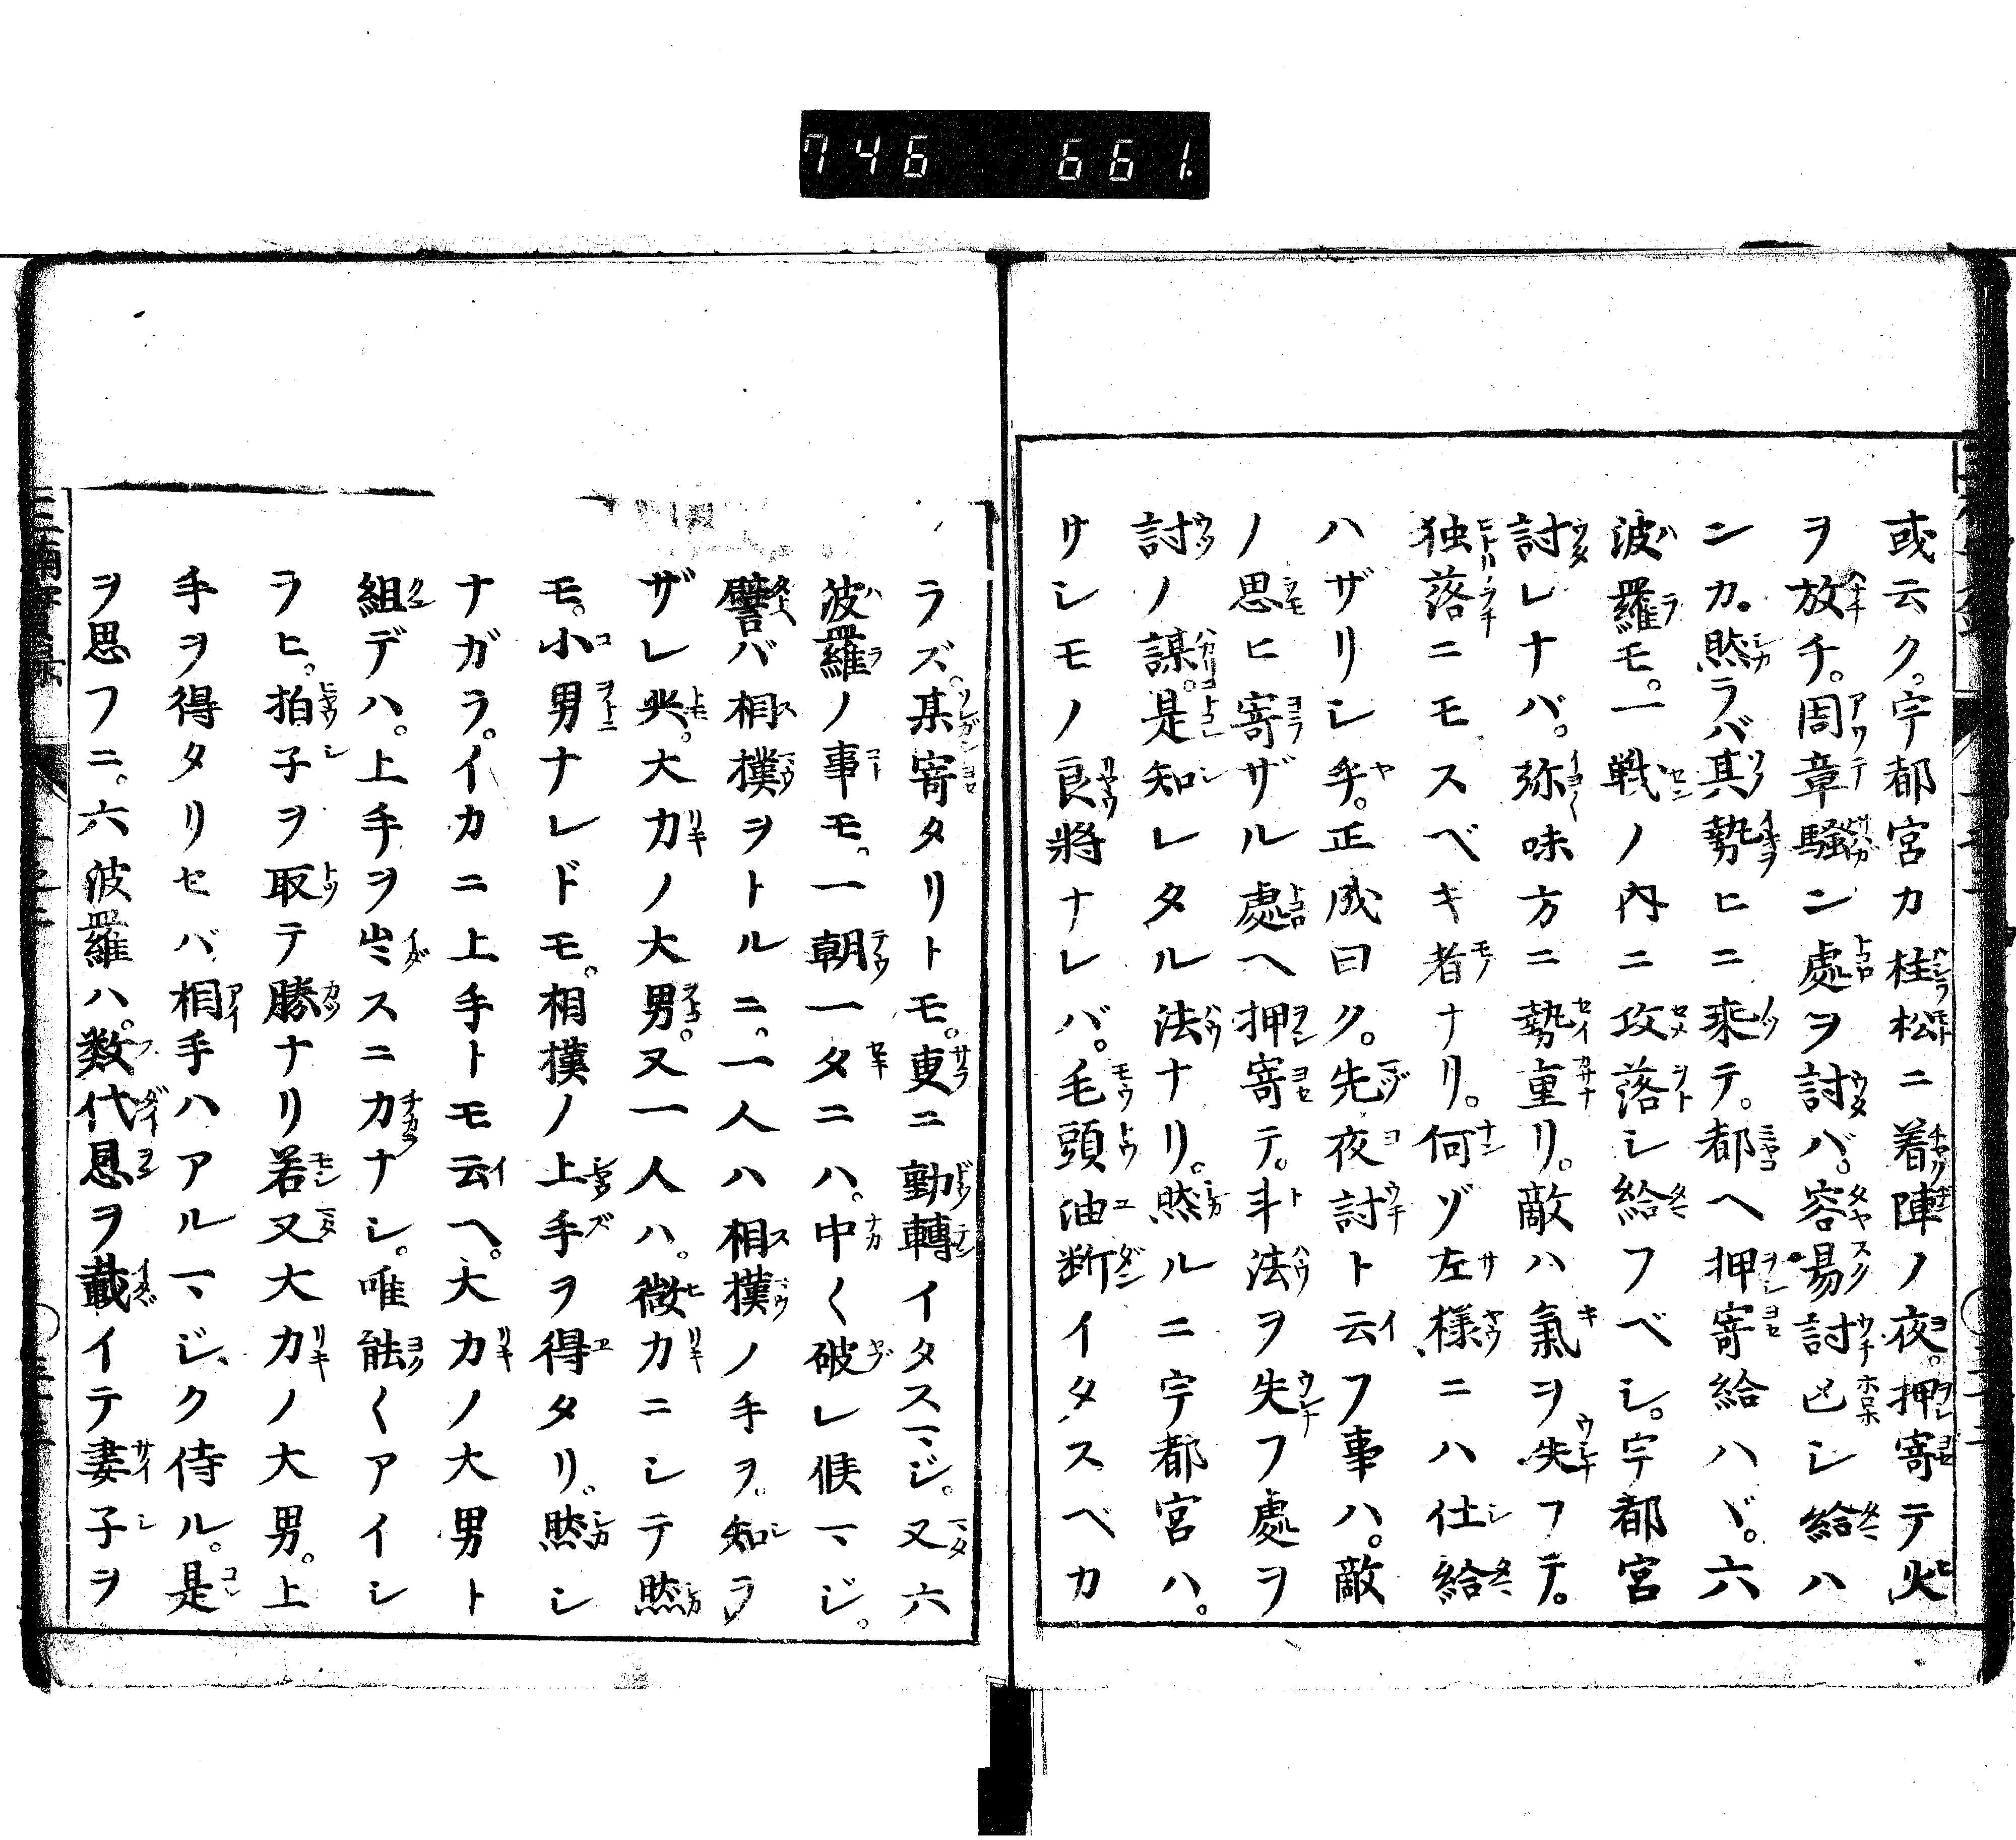 746 661.
或云ク。宇都宮カ桂松ニ着陣ノ夜。押寄テ火
ヲ放チ。周章騒ン處ヲ討バ。容易討亡シ給ハ
ンカ。然ラバ其勢ヒニ乗テ。都ヘ押寄給ハヾ。六
波羅モ。一戦ノ内ニ攻落シ給フベシ。宇都宮
討レナバ。弥味方ニ勢重リ。敵ハ氣ヲ失フテ。
独落ニモスベキ者ナリ。何ゾ左様ニハ仕給
ハザリシ乎。正成曰ク。先夜討ト云フ事ハ。敵
ノ思ヒ寄ザル處ヘ押寄テ。斗法ヲ失フ處ヲ
討ノ謀。是知レタル法ナリ。然ルニ宇都宮ハ。
サシモノ良將ナレバ。毛頭油断イタスベカ
ラズ。某寄タリトモ。更ニ動轉イタスマジ。又六
波羅ノ事モ。一朝一夕ニハ。中〱破レ候マジ。
譬バ相撲ヲトルニ。一人ハ相撲ノ手ヲ。知ラ
ザレ共。大力ノ大男。又一人ハ。微力ニシテ然
モ。小男ナレドモ。相撲ノ上手ヲ得タリ。然シ
ナガラ。イカニ上手トモ云ヘ。大力ノ大男ト
組デハ。上手ヲ出スニカナシ。唯能〱アイシ
ヲヒ。拍子ヲ取テ勝ナリ若又大力ノ大男。上
手ヲ得タリセバ相手ハアルマジク侍ル。是
ヲ思フニ。六波羅ハ。数代恩ヲ載イテ妻子ヲ